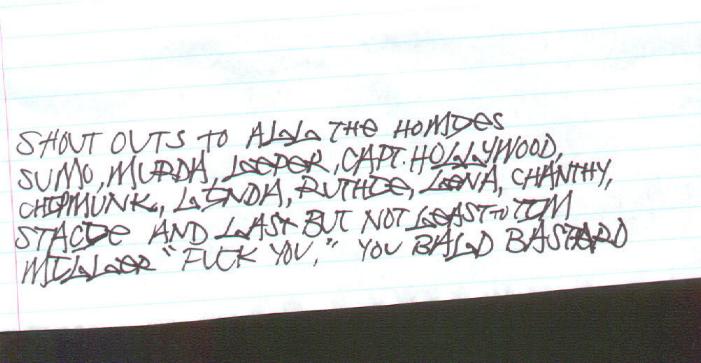 SHOUT OUTS TO ALL THE HOMIES
SUMO, MURDA, LEEPER, CAPT. HOLLYWOOD,
CHIPMUNK, LINDA, RUTHIE, LENA, CHANTHY,
STACIE AND LAST BUT NOT LEAST TO TIM
MILLER "FUCK YOU," YOU BALD BASTARD